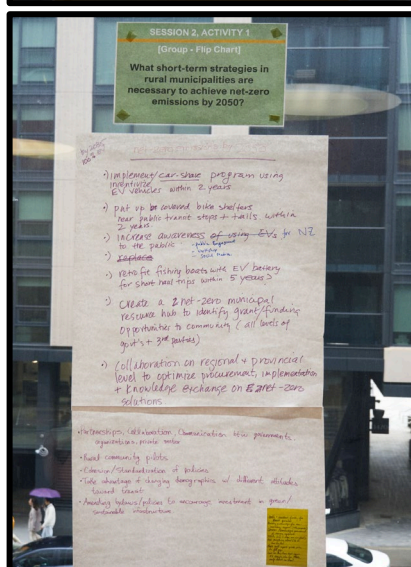 SESSION 2, ACTIVITY 1
[Group - Flip Chart]
What short-term strategies in
rural municipalities are
necessary to achieve net-zero
emissions by 2050?
•) implement/car-share program using
incentivize
EV vehicles within 2 years
•) put up covered bike shelters
near public transit stops + trails within
2 years
•) increase awareness of using EVs for NZ
to the public
- public engagement
- social media
•) replace
•) retrofit fishing boats with EV battery
for short haul trips within 5 years?
•) Create a net-zero municipal
resource hub to identify grant/funding
opportunities to community (all levels of
gov't + 3rd parties)
•) Collaboration on regional + provincial
level to optimize procurement, implementation
+ knowledge exchange on net-zero
solutions
• Partnerships, Collaboration, Communication btw governments
organizations, private sector
• Rural community pilots
• Cohesion/Standardization of policies
• Take advantage of changing demographics w/ different attitudes
toward transit
• Amending bylaws/policies to encourage investment in green/
sustainable infrastructure